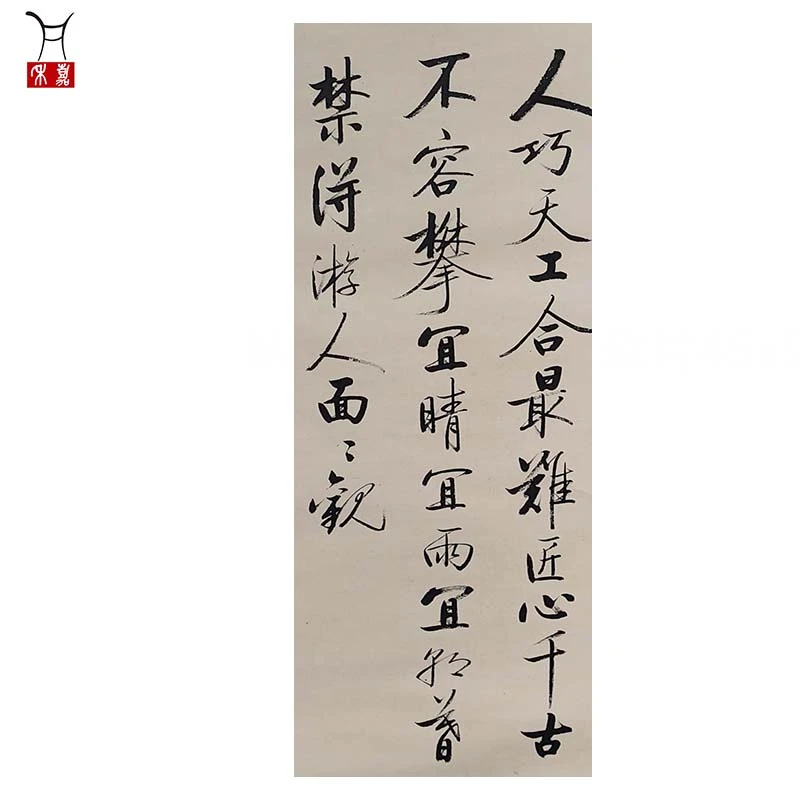 人巧天工合最難匠心千古
不容攀冝晴冝雨冝朝暮
禁得游人面〻觀